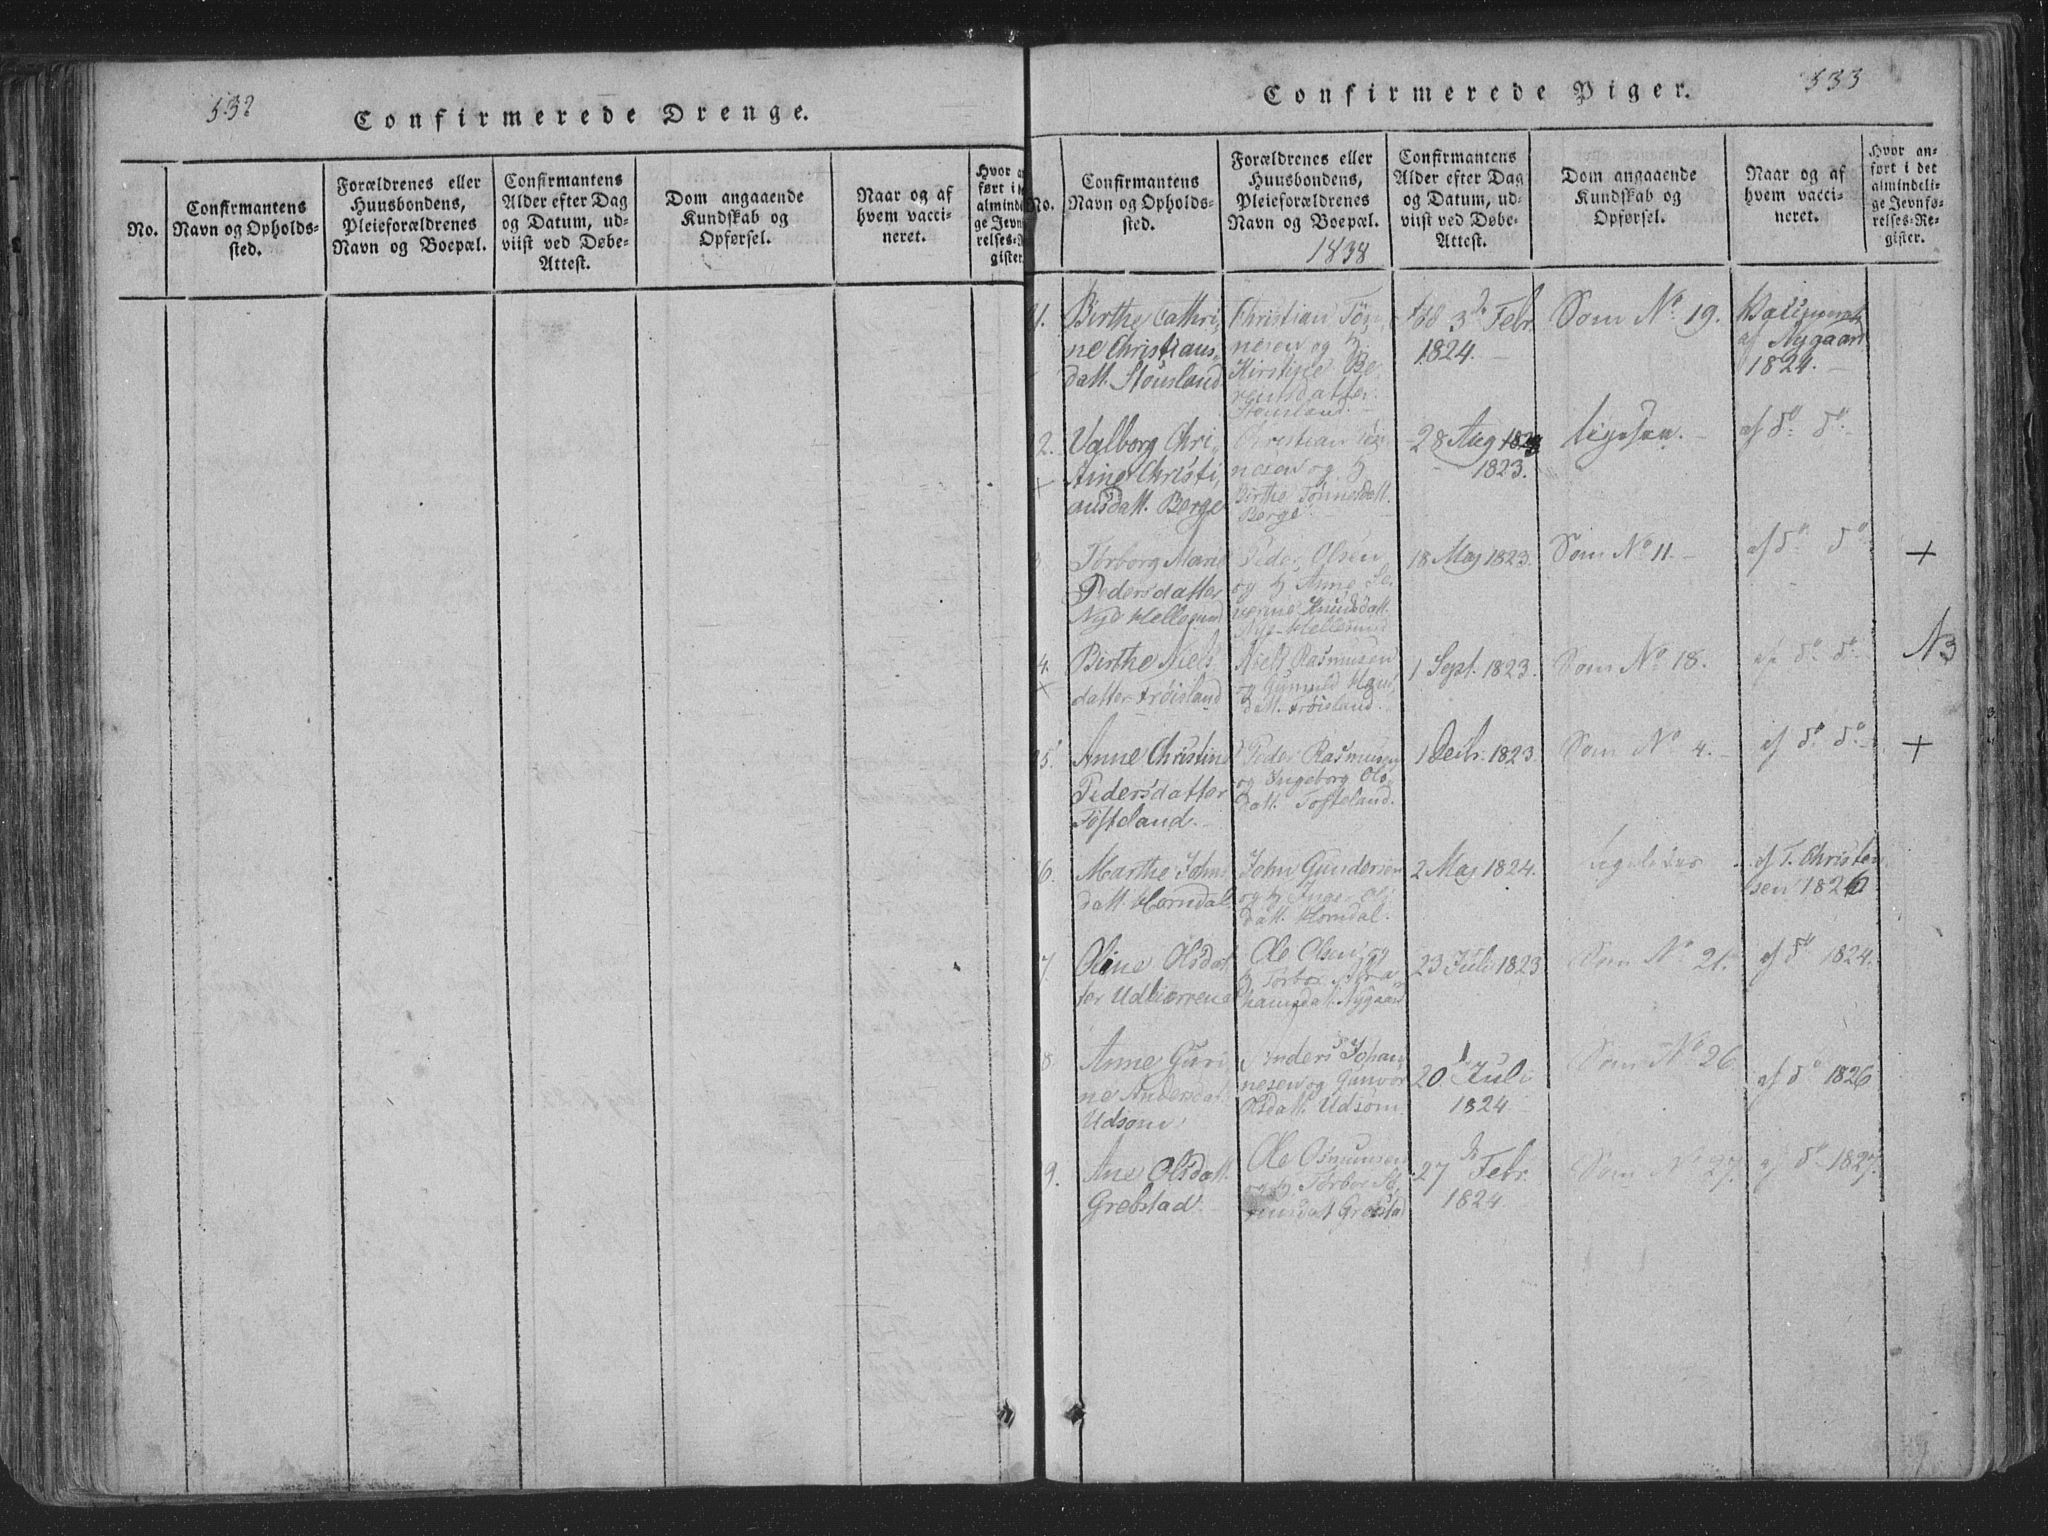 532
Confirmerede Drenge.
No.
Confirmantens
Navn og Opholds-
sted.
Forældrenes eller
Huusbondens,
Pleieforældrenes
Navn og Boepæl.
Confirmantens
Alder efter Dag
og Datum, ud-
viist ved Døbe-
Attest.
Dom angaaende
Kundskab og
Opførsel.
Naar og af
hvem vacci-
neret.
Hvor
ført i
almind
ge Jevn
relses-
gister.
533
Confirmerede Piger.
No.
Confirmantens
Navn og Opholds-
sted.
Forældrenes eller
Huusbondens,
Pleieforældrenes
Navn og Boepæl.
1838
Confirmantens
Alder efter Dag
og Datum, ud-
viist ved Døbe-
Attest.
Dom angaaende
Kundskab og
Opførsel.
Naar og af
hvem vacci-
neret.
Hvor an-
ført i det
almindeli-
ge Jevnfø-
relses-Re-
gister.
1.
Birthe Cathri,
ne Christians,
datt. Stousland
Christian Tøn,
nesen og H.
Kirstine Be,
rentsdatter
Stousland.
3 Febr.
1824.
Som No 19.
af Nygaard
1824.
2.
Valborg Chri,
stine Christi,
ansdatt. Berge
Christian Tøn
nesen og H
Birthe Tønnesdatt.
Berge
28 Aug
1823.
ligesaa.
af do do
3.
Torborg Marie
Pedersdatter
Nye Hellesund
Peder Olsen
og H Anne Se,
verine Knudsdatt.
Nye-Hellesund
18 Maj 1823.
Som No 11.
af do do
+
4.
Birthe Niels
datter Frøisland
Niels Rasmusen
og Gunnild Hans
datt. Frøisland.
1 Sept. 1823.
Som No 18.
af do do
N3
5.
Anne Christine
Pedersdatter
Tofteland.
Peder Rasmusen
og Ingeborg Ols,
datt. Tofteland.
1 Decbr. 1823.
Som No 4.
af do do
+
6.
Marthe Johns
datt. Horndal.
John Gundersen
og H Inge Ols
datt. Horndal.
2 Maj 1824.
af T. Christen
sen 1826
7.
Oline Olsdat
ter Udtiørrena
Ole Olsen og
H Torbor Abra
hamsdat. Nygaard
23 Juli 1823
Som No 21.
af do 1824.
8.
Anne Guri
ne Andersdat
Udsom
Anders Johan
nesen og Gunvor
Olsdatt. Udsom.
20 Juli
1824
Som No 26
af do 1826
9.
Ane Olsdatt.
Grebstad.
Ole Osmunsen
og H. Torbor
Grebstad
27 Febr.
1824.
Som No 27.
af do 1827.